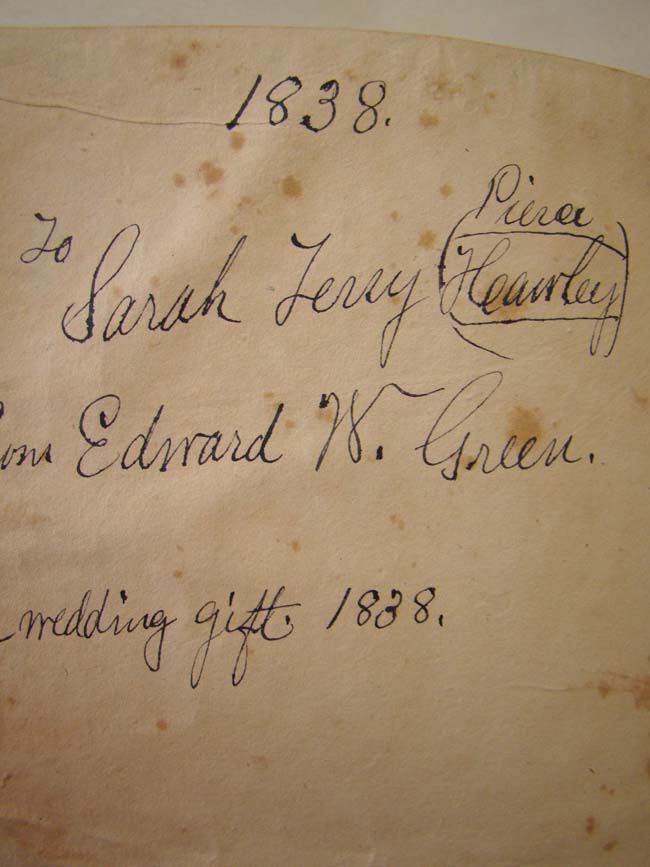 1838.
To Sarah Terry (Heawley)
Edward W. Green.
wedding gift. 1838.